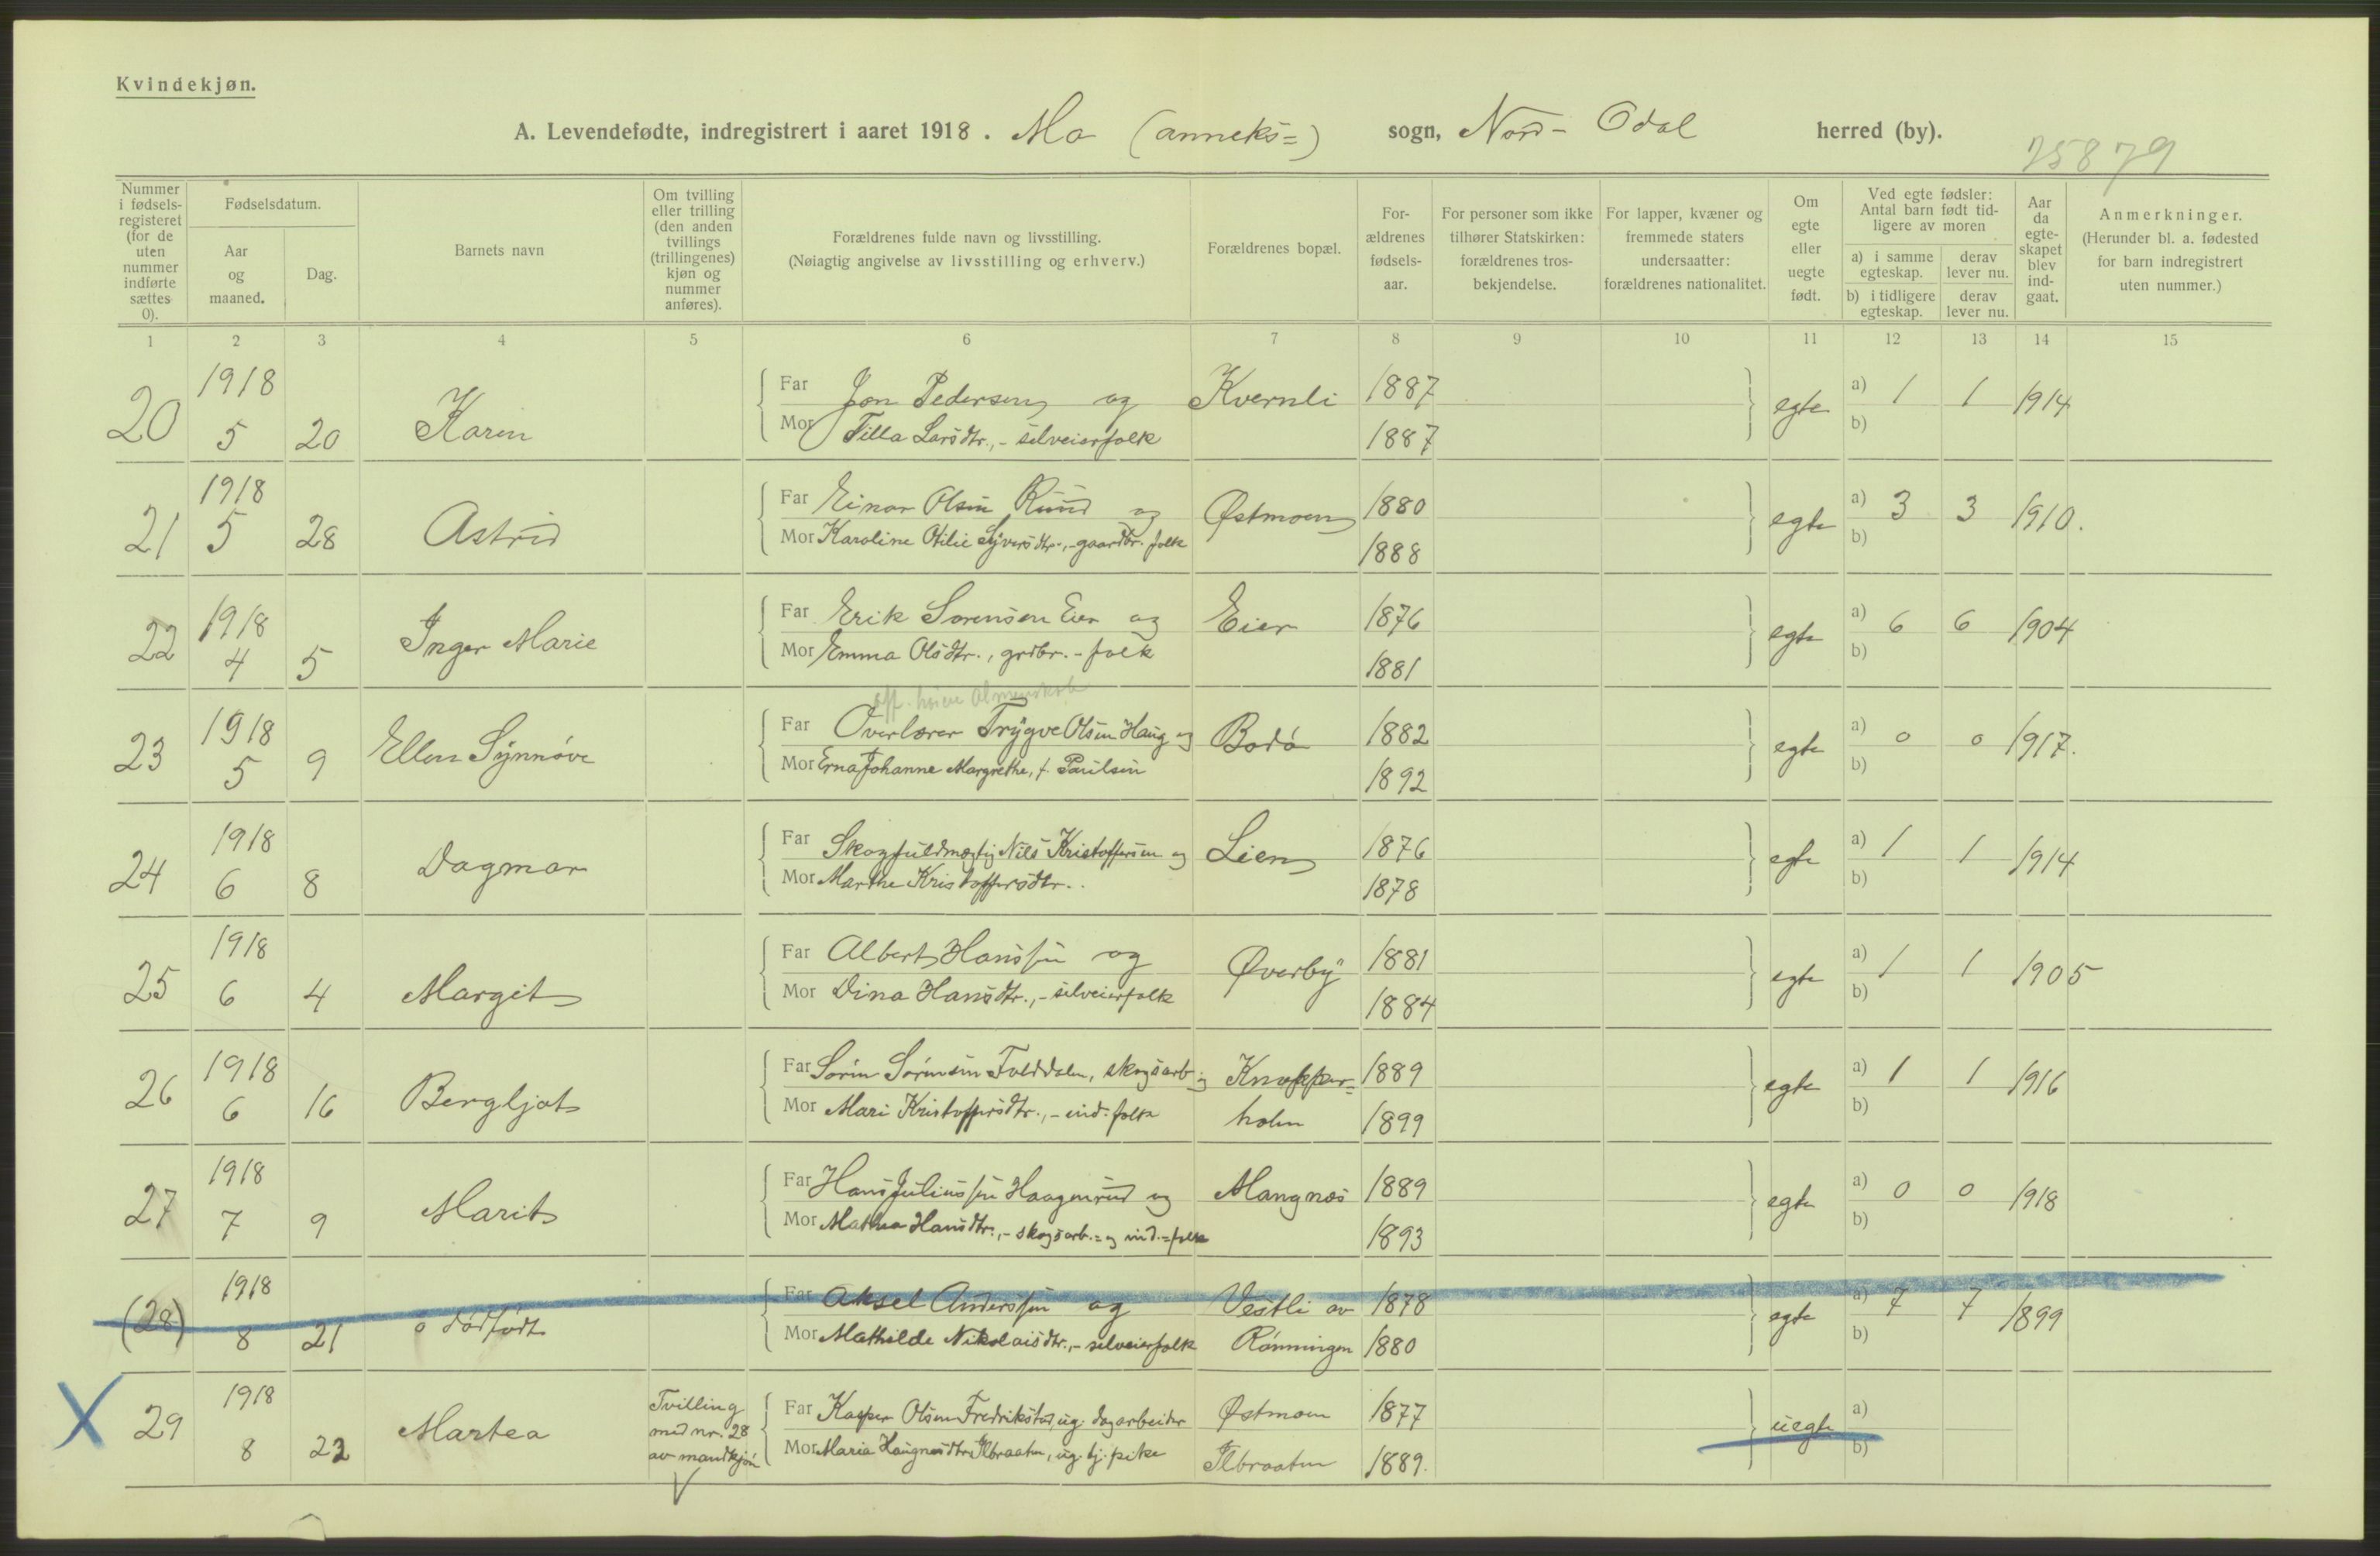 Kvindekjøn.
A. Levendefødte, indregistrert i aaret 1918. Mo (anneks=) sogn, Nord-Odal herred (by).
25879
Nummer i fødsels-registeret (for de uten nummer indførte sættes 0).
Fødselsdatum.
Aar og maaned.
Dag.
Barnets navn
Om tvilling eller trilling (den anden tvillings (trillingenes) kjøn og nummer anføres).
Forældrenes fulde navn og livsstilling.
(Nøiagtig angivelse av livsstilling og erhverv.)
Forældrenes bopæl.
For-ældrenes fødsels-aar.
For personer som ikke tilhører Statskirken: forældrenes tros-bekjendelse.
For lapper, kvæner og fremmede staters undersaatter: forældrenes nationalitet.
Om egte eller uegte født.
Ved egte fødsler: Antal barn født tid-ligere av moren
a) i samme egteskap.
derav lever nu.
b) i tidligere egteskap.
derav lever nu.
Aar da egte-skapet blev ind-gaat.
Anmerkninger.
(Herunder bl. a. fødested for barn indregistrert uten nummer.)
1 2 3 4 5 6 7 8 9 10 11 12 13 14 15
20 1918 5 20 Karen Far Jon Pedersen og Kvernli 1887 egte a) 1 1 1914
Mor Tilla Larsdtr., - selveierfolk 1887 b)
21 1918 5 28 Astrid Far Einar Olsen Ruud og Østmoen 1880 egte a) 3 3 1910.
Mor Karoline Otilie Syversdtr., - gaardbr. folk 1888 b)
22 1918 4 5 Inger Marie Far Erik Sorensen Eier og Eier 1876 egte a) 6 6 1904
Mor Emma Olsdtr., grdbr. - folk 1881 b)
23 1918 5 9 Ellen Synnøve Far Overlærer Trygve Olsen Haug og Bodø 1882 egte a) 0 0 1917.
Mor Erna Johanne Margrethe, f. Paulsen 1892 b)
24 1918 6 8 Dagmar Far Skogfuldmægtig Nils Kristoffersen og Lien 1876 egte a) 1 1 1914
Mor Marthe Kristoffersdtr. 1878 b)
25 1918 6 4 Margit Far Albert Hanssen og Øverby 1881 egte a) 1 1 1905
Mor Dina Hansdtr., - selveierfolk 1884 b)
26 1918 6 16 Bergljot Far Sørin Sørensen Folddalen, skogsarb. og Knapper= 1889 egte a) 1 1 1916
Mor Mari Kristoffersdtr., - ind. folk holm 1899 b)
27 1918 7 9 Marit Far Hans Juliussen Haagenrud og Mangnæs 1889 egte a) 0 0 1918
Mor Mathea Hansdtr., - skogsarb.= og ind.=folk 1893 b)
(28) 1918 8 21 o dødfødt Far Aksel Anderssen og Vestli av 1878 egte a) 7 7 1899
Mor Mathilde Nikolaisdtr., - selveierfolk Rønningen 1880 b)
X 29 1918 8 22 Martea Tvilling med nr. 28 av mandkjøn Far Kasper Olsen Fredrikstad, ug. dagarbeider Østmoen 1877 uegte a)
Mor Maria Haugnæsdtr. Ilbraaten, ug. tj. pike Ilbraaten 1889. b)